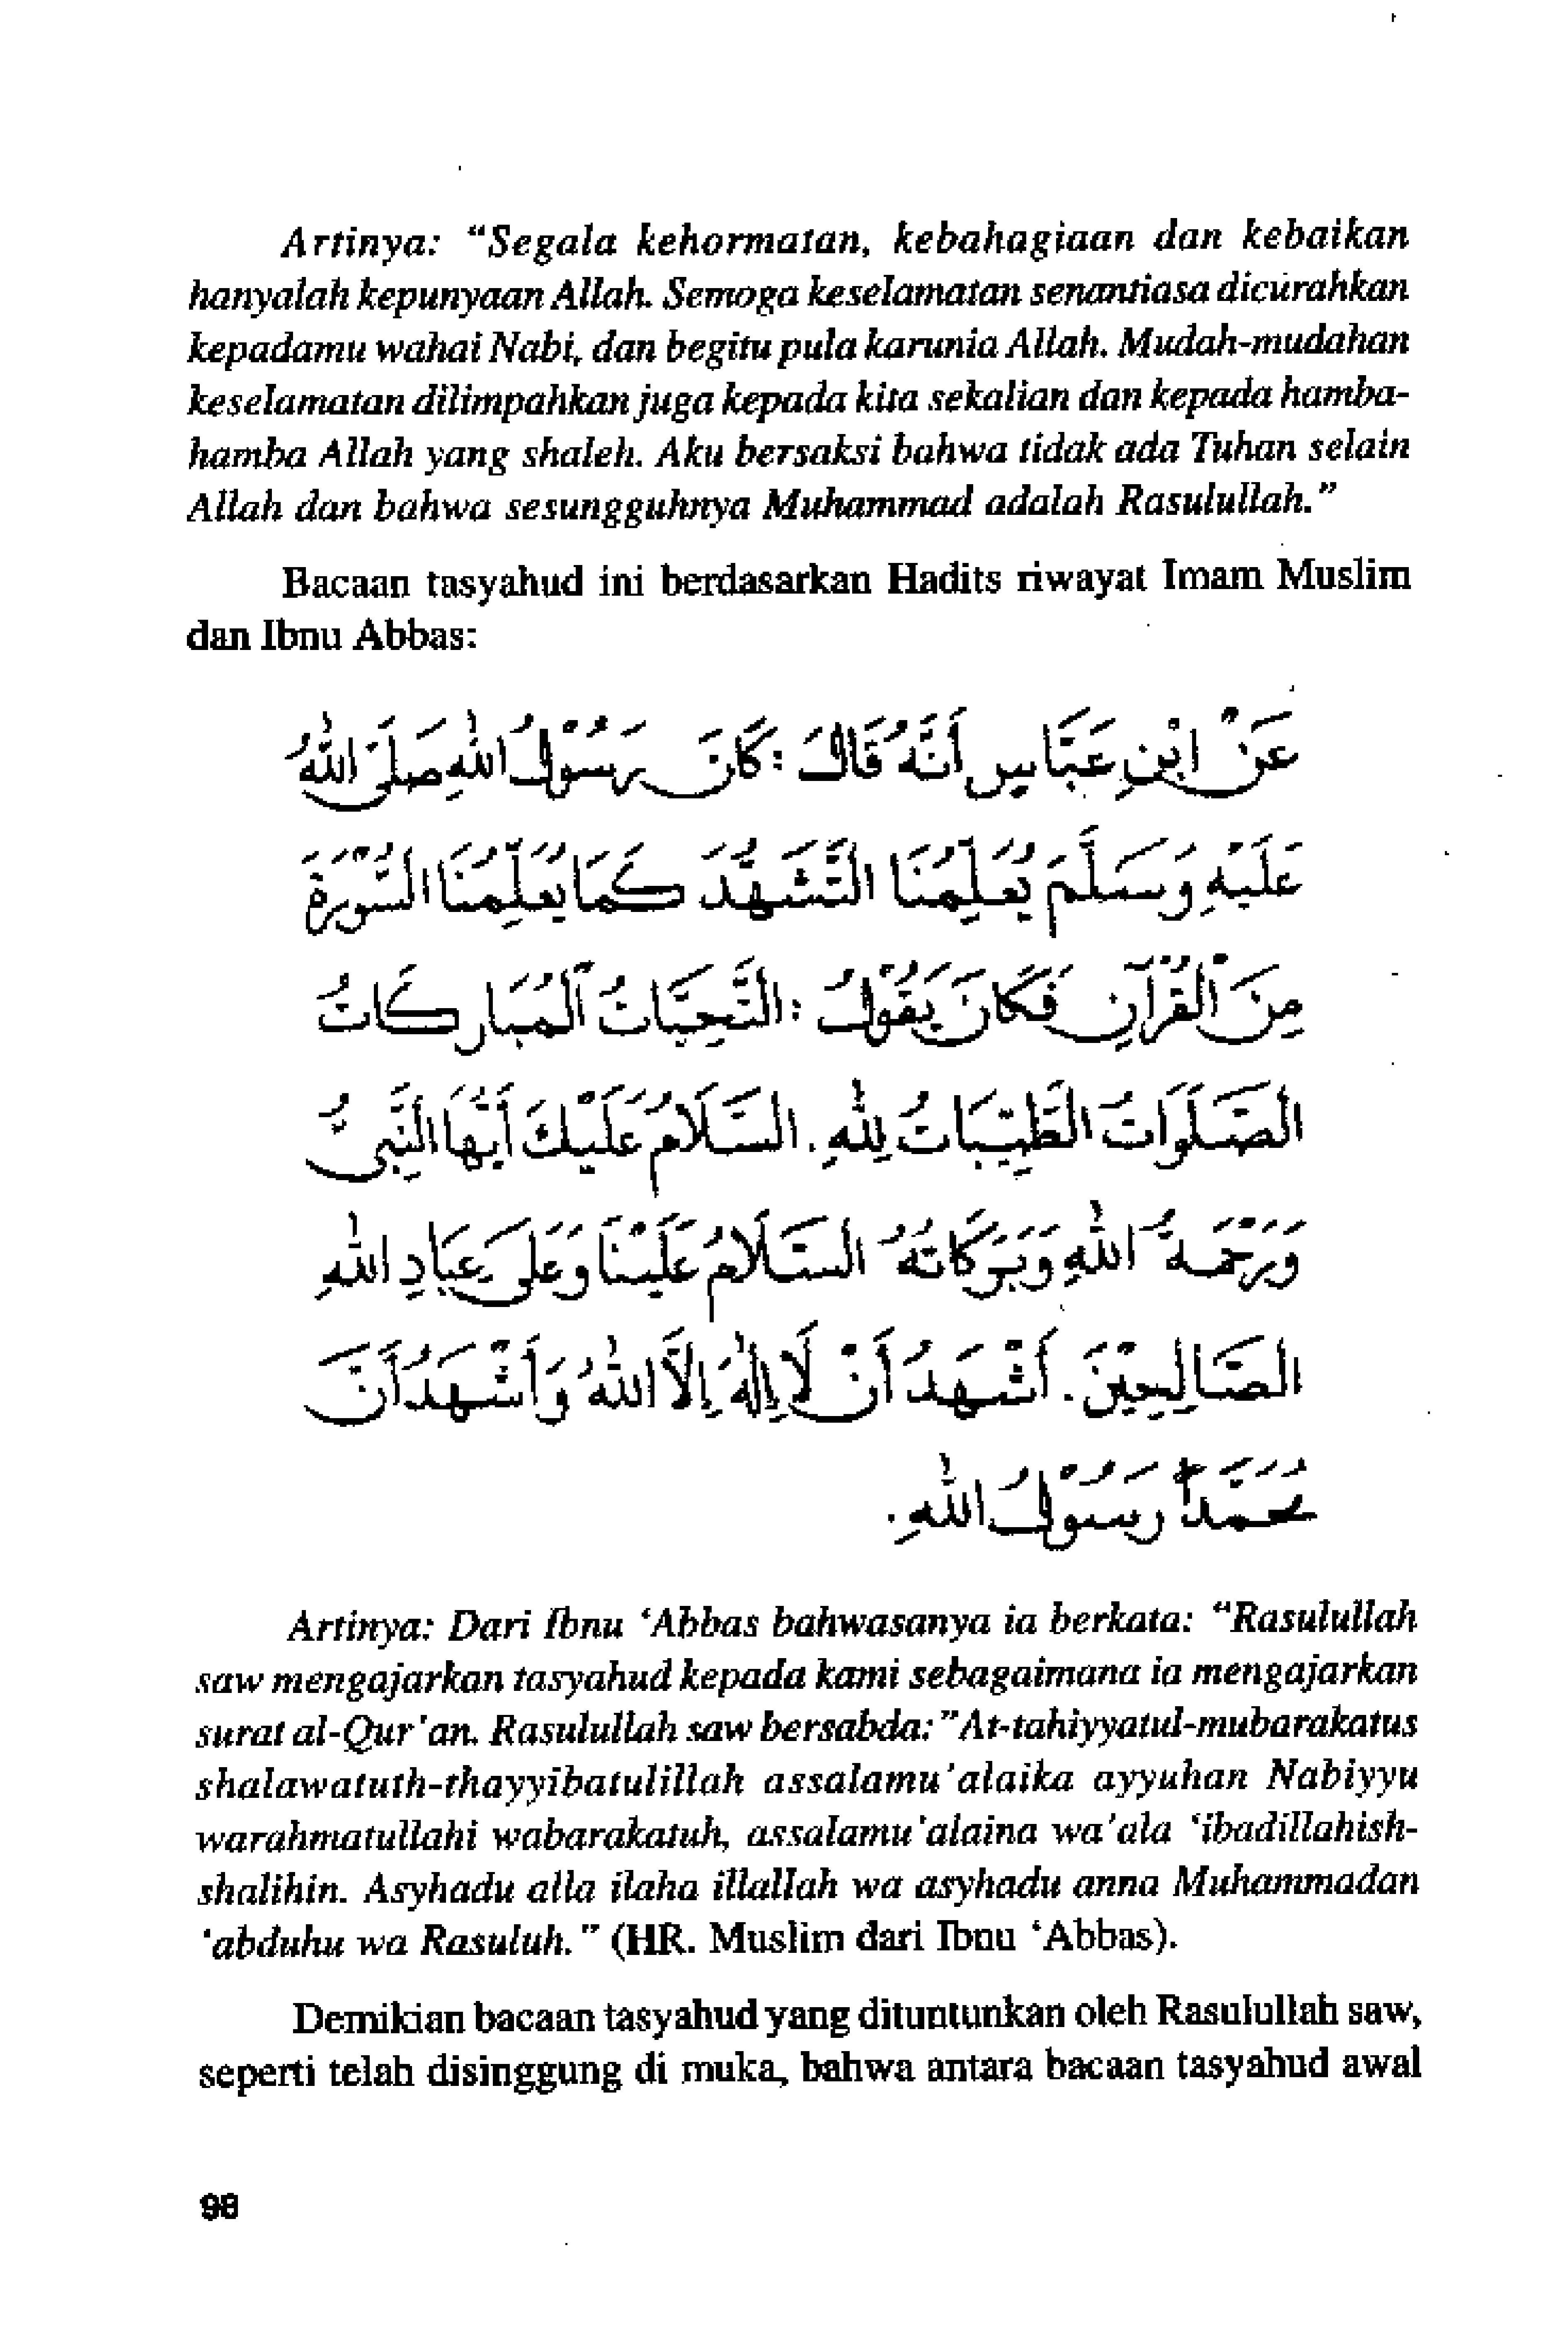 Artinya: “Segala kehormatan, kebahagiaan dan kebaikan
hanyalah kepunyaan Allah. Semoga keselamatan senantiasa dicurahkan
kepadamu wahai Nabi, dan begitu pula karunia Allah. Mudah-mudahan
keselamatan dilimpahkan juga kepada kita sekalian dan kepada hamba-
hamba Allah yang shaleh. Aku bersaksi bahwa tidak ada Tuhan selain
Allah dan bahwa sesungguhnya Muhammad adalah Rasulullah.”
Bacaan tasyahud ini berdasarkan Hadits riwayat Imam Muslim
dan Ibnu Abbas:
عَنْ ابْنِ عَبَّاسٍ أَنَّهُ قَالَ : كَانَ رَسُوْلُ اللهِ صَلَّى اللهُ
عَلَيْهِ وَسَلَّمَ يُعَلِّمُنَا التَّشَهُّدَ كَمَا يُعَلِّمُنَا السُّوْرَةَ
مِنَ الْقُرْآنِ فَكَانَ يَقُوْلُ : التَّحِيَّاتُ الْمُبَارَكَاتُ
الصَّلَوَاتُ الطَّيِّبَاتُ لِلّٰهِ . السَّلَامُ عَلَيْكَ اَيُّهَا النَّبِيُّ
وَرَحْمَةُ اللهِ وَبَرَكَاتُهُ السَّلَامُ عَلَيْنَا وَعَلَى عِبَادِ اللهِ
الصَّالِحِيْنَ . اَشْهَدُ اَنْ لَا اِلٰهَ اِلَّا اللهُ وَاَشْهَدُ اَنَّ
مُحَمَّدًا رَسُوْلُ اللهِ .
Artinya: Dari Ibnu ‘Abbas bahwasanya ia berkata: “Rasulullah
saw mengajarkan tasyahud kepada kami sebagaimana ia mengajarkan
surat al-Qur'an. Rasulullah saw bersabda: "At-tahiyyatul-mubarakatus
shalawatuth-thayyibatulillah assalamu'alaika ayyuhan Nabiyyu
warahmatullahi wabarakatuh, assalamu'alaina wa'ala ‘ibadillahish-
shalihin. Asyhadu alla ilaha illallah wa asyhadu anna Muhammadan
‘abduhu wa Rasuluh.” (HR. Muslim dari Ibnu ‘Abbas).
Demikian bacaan tasyahud yang dituntunkan oleh Rasulullah saw,
seperti telah disinggung di muka, bahwa antara bacaan tasyahud awal
98